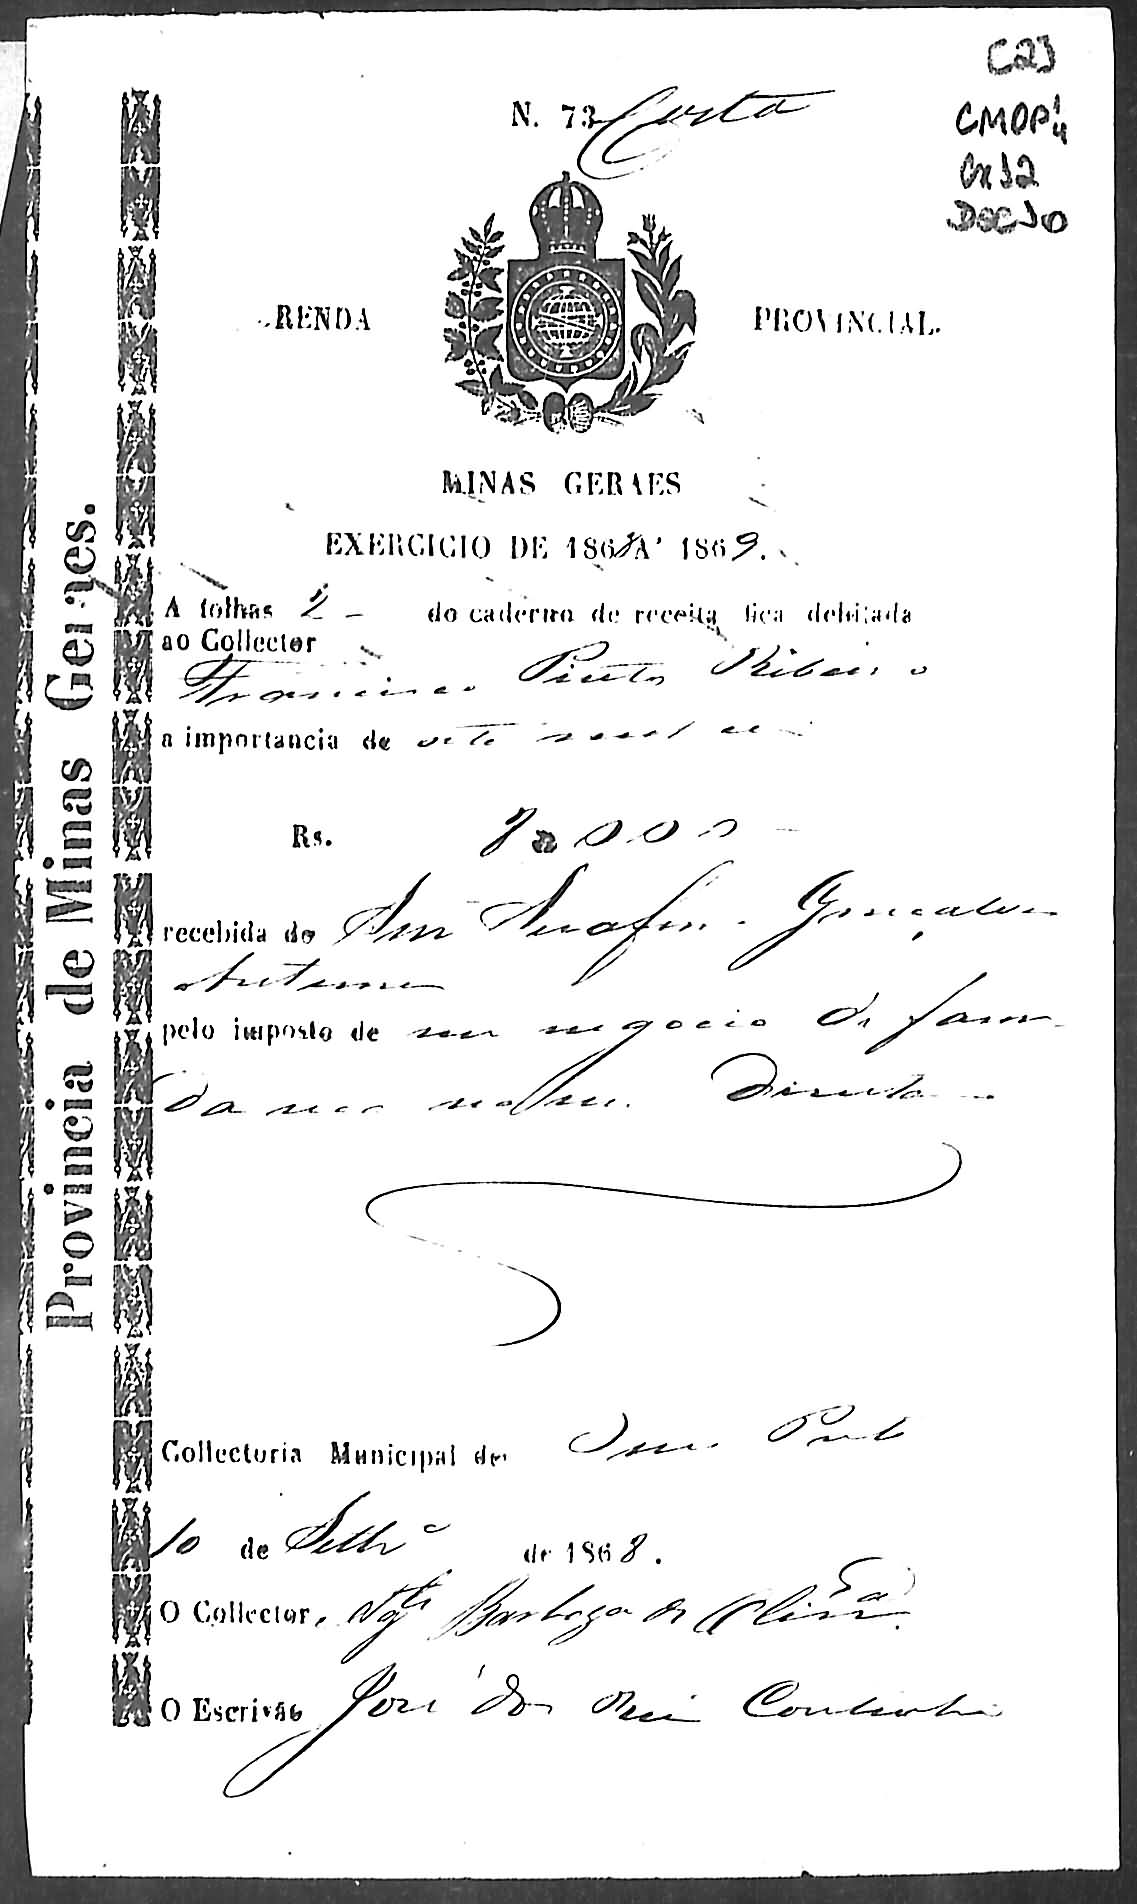 C23
CMOP 1/4
Cx 12
DOC 10
N. 73 Corta
RENDA PROVINCIAL.
MINAS GERAES
EXERCICIO DE 1868 A' 1869.
A folhas 2 - do caderno de receita fica debitada
ao Collector
Francisco Pinto Ribeiro
a importancia de oito mil rei
Rs. 8 000
recebida do Snr Serafim Gonçalves
Antunes
pelo imposto de seu negocio de fasen
da Direita
Collectoria Municipal de Ouro Preto
10 de Settbro de 1868.
O Collector, Barboza de Olivra
O Escrivão José dos Reis Coutinho
Provincia de Minas Geraes.